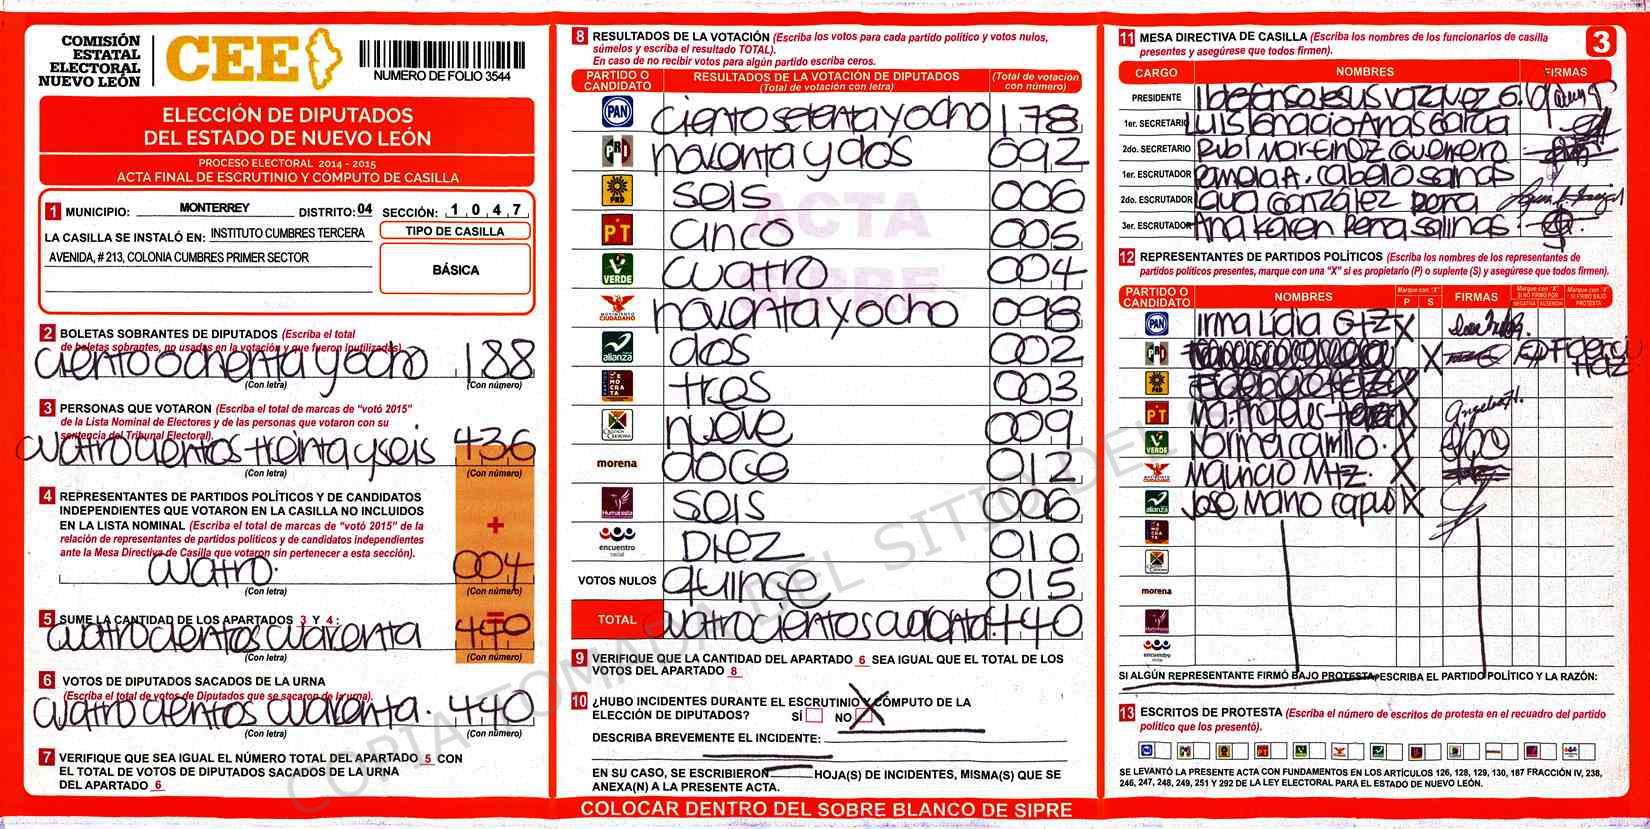 COMISIÓN
ESTATAL
ELECTORAL
NUEVO LEÓN
CEE
NUMERO DE FOLIO 3544
ELECCIÓN DE DIPUTADOS
DEL ESTADO DE NUEVO LEÓN
PROCESO ELECTORAL 2014 - 2015
ACTA FINAL DE ESCRUTINIO Y CÓMPUTO DE CASILLA
1 MUNICIPIO: MONTERREY DISTRITO: 04 SECCIÓN: 1 0 4 7
LA CASILLA SE INSTALÓ EN: INSTITUTO CUMBRES TERCERA
AVENIDA, # 213, COLONIA CUMBRES PRIMER SECTOR
TIPO DE CASILLA
BÁSICA
2 BOLETAS SOBRANTES DE DIPUTADOS (Escriba el total
de boletas sobrantes, no usadas en la votación y que fueron inutilizadas).
ciento ochenta y ocho 188
(Con letra) (Con número)
3 PERSONAS QUE VOTARON (Escriba el total de marcas de "votó 2015"
de la Lista Nominal de Electores y de las personas que votaron con su
sentencia del Tribunal Electoral).
cuatrocientos treinta y seis 436
(Con letra) (Con número)
4 REPRESENTANTES DE PARTIDOS POLÍTICOS Y DE CANDIDATOS
INDEPENDIENTES QUE VOTARON EN LA CASILLA NO INCLUIDOS
EN LA LISTA NOMINAL (Escriba el total de marcas de "votó 2015" de la
relación de representantes de partidos políticos y de candidatos independientes
ante la Mesa Directiva de Casilla que votaron sin pertenecer a esta sección).
+
cuatro. 004
(Con letra) (Con número)
=
5 SUME LA CANTIDAD DE LOS APARTADOS 3 Y 4:
cuatrocientos cuarenta 440
(Con letra) (Con número)
6 VOTOS DE DIPUTADOS SACADOS DE LA URNA
(Escriba el total de votos de Diputados que se sacaron de la urna).
cuatrocientos cuarenta. 440
(Con letra) (Con número)
7 VERIFIQUE QUE SEA IGUAL EL NÚMERO TOTAL DEL APARTADO 5 CON
EL TOTAL DE VOTOS DE DIPUTADOS SACADOS DE LA URNA
DEL APARTADO 6
8 RESULTADOS DE LA VOTACIÓN (Escriba los votos para cada partido político y votos nulos,
súmelos y escriba el resultado TOTAL).
En caso de no recibir votos para algún partido escriba ceros.
PARTIDO O CANDIDATO RESULTADOS DE LA VOTACIÓN DE DIPUTADOS (Total de votación con letra) (Total de votación con número)
PAN ciento setenta y ocho 178
PRI noventa y dos 092
PRD seis 006
PT cinco 005
VERDE cuatro 004
MOVIMIENTO CIUDADANO noventa y ocho 098
alianza dos 002
DEMOCRATA tres 003
CRUZADA CIUDADANA nueve 009
morena doce 012
Humanista seis 006
encuentro social Diez 010
VOTOS NULOS quince 015
TOTAL cuatrocientos cuarenta 440
ACTA
SIPRE
9 VERIFIQUE QUE LA CANTIDAD DEL APARTADO 6 SEA IGUAL QUE EL TOTAL DE LOS
VOTOS DEL APARTADO 8
10 ¿HUBO INCIDENTES DURANTE EL ESCRUTINIO Y CÓMPUTO DE LA
ELECCIÓN DE DIPUTADOS? SÍ NO X
DESCRIBA BREVEMENTE EL INCIDENTE:
EN SU CASO, SE ESCRIBIERON HOJA(S) DE INCIDENTES, MISMA(S) QUE SE
ANEXA(N) A LA PRESENTE ACTA.
COLOCAR DENTRO DEL SOBRE BLANCO DE SIPRE
COPIA TOMADA DEL SITIO DEL
11 MESA DIRECTIVA DE CASILLA (Escriba los nombres de los funcionarios de casilla
presentes y asegúrese que todos firmen).
3
CARGO NOMBRES FIRMAS
PRESIDENTE Ildefonso Jesus Vazquez G.
1er. SECRETARIO Luis Ignacio Arias Garcia
2do. SECRETARIO Rubi Martinez Guerrero
1er. ESCRUTADOR Pamela A. Cabello Salinas
2do. ESCRUTADOR González Peña
3er. ESCRUTADOR Ana Karen Peña Salinas
12 REPRESENTANTES DE PARTIDOS POLÍTICOS (Escriba los nombres de los representantes de
partidos políticos presentes, marque con una "X" si es propietario (P) o suplente (S) y asegúrese que todos firmen).
PARTIDO O CANDIDATO NOMBRES Marque con "X" P S FIRMAS Marque con "X" SI NO FIRMÓ POR NEGATIVA AUSENCIA Marque con "X" SI FIRMÓ BAJO PROTESTA
PAN Irma Lidia Gtz X
PRI X
PRD X
PT Ma. Angeles X
VERDE Norma Camilo. X
MOVIMIENTO CIUDADANO Mauricio Mtz. X
alianza Jose Mario X
morena
Humanista
encuentro social
SI ALGÚN REPRESENTANTE FIRMÓ BAJO PROTESTA, ESCRIBA EL PARTIDO POLÍTICO Y LA RAZÓN:
13 ESCRITOS DE PROTESTA (Escriba el número de escritos de protesta en el recuadro del partido
político que los presentó).
SE LEVANTÓ LA PRESENTE ACTA CON FUNDAMENTOS EN LOS ARTÍCULOS 126, 128, 129, 130, 187 FRACCIÓN IV, 238,
246, 247, 248, 249, 251 Y 292 DE LA LEY ELECTORAL PARA EL ESTADO DE NUEVO LEÓN.